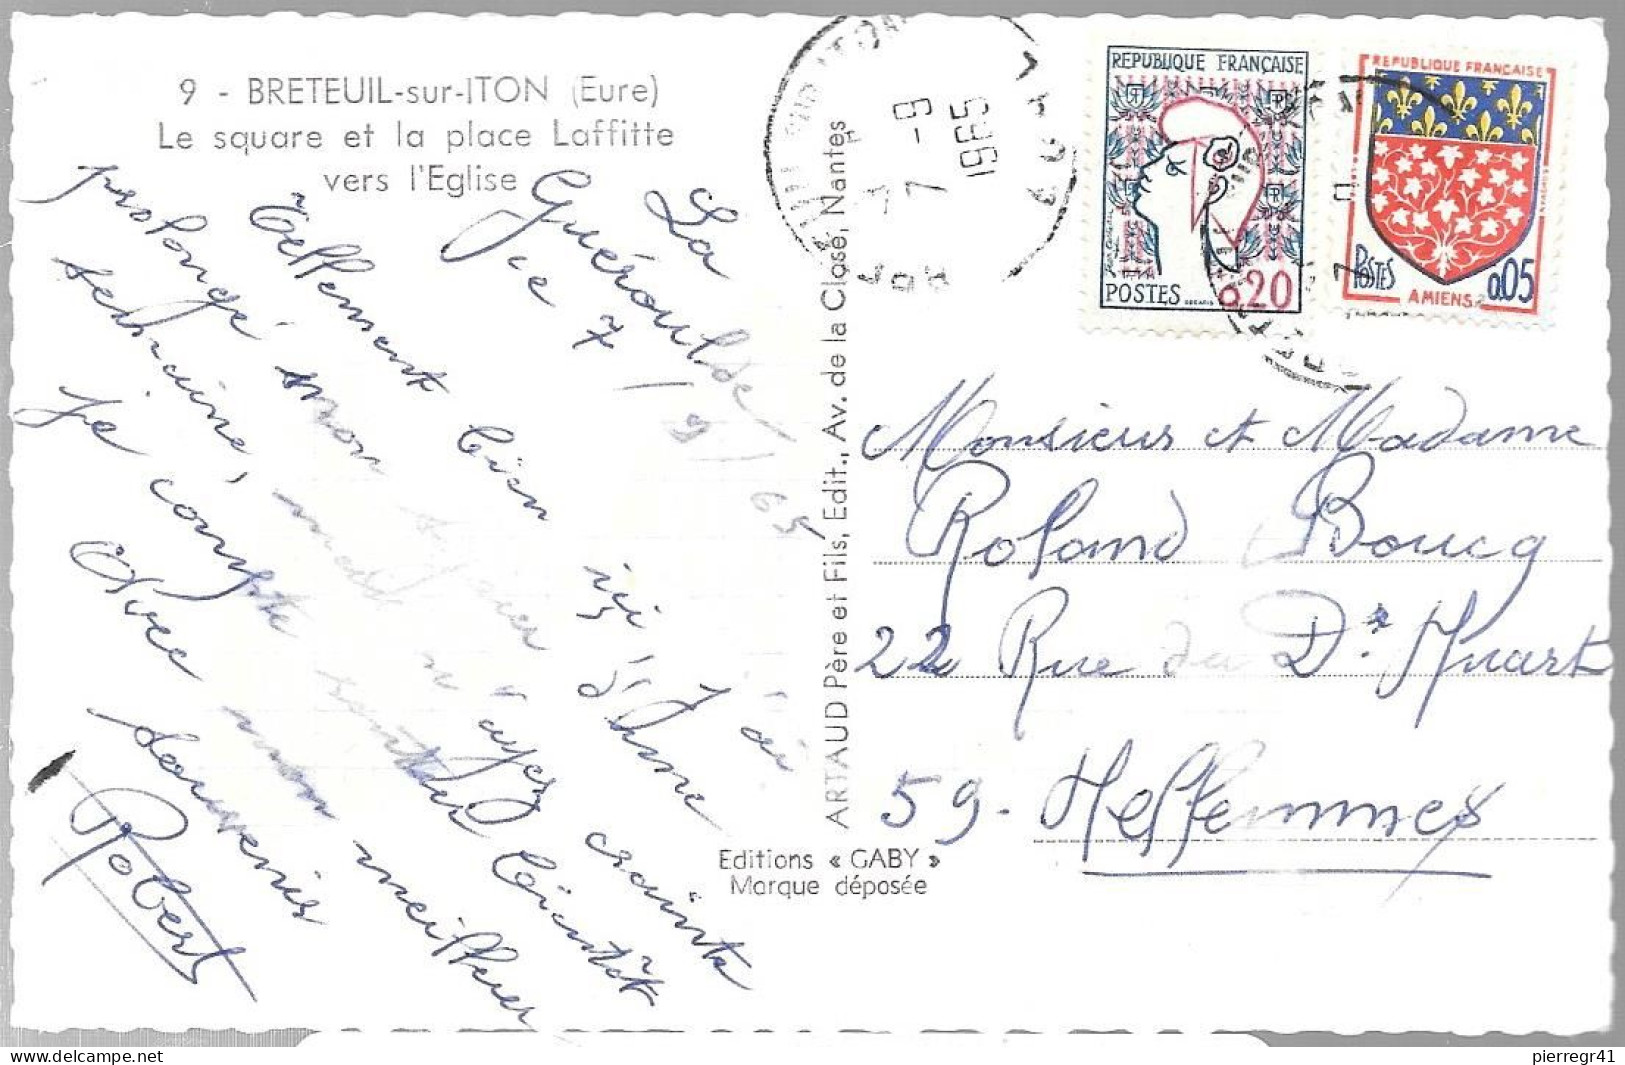 9 - BRETEUIL-sur-ITON (Eure)
Le square et la place Laffitte
vers l'Eglise
La
Guéroulde
Ce 7/9/65
Tellement bien ici, j'ai
prolongé mon séjour d'une
semaine, mais n'ayez crainte
je compte rentrer bientôt
Avec mon meilleur
souvenir
Robert
ARTAUD Père et Fils, Edit., Av. de la Close, Nantes
Editions « GABY »
Marque déposée
7 - 9
1965
REPUBLIQUE FRANÇAISE
POSTES
DECARIS
0,20
REPUBLIQUE FRANÇAISE
POSTES
AMIENS
0,05
Monsieur et Madame
Roland Boucq
22 Rue du Dr Huart
59 - Hellemmes
pierregr41